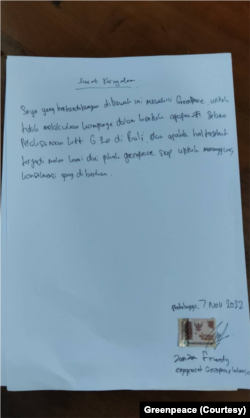 Surat Pernyataan
Saya yang bertandatangan dibawah ini mewakili Greenpeace untuk
tidak melakukan kampanye dalam bentuk apapun di selama
Pelaksanaan KTT G 20 di Bali dan apabila hal tersebut
terjadi maka kami dan pihak greenpeace siap untuk menanggung
konsekuensi yang di berikan.
Probolinggo, 7 Nov 2022
Greenpeace
Greenpeace (Courtesy)